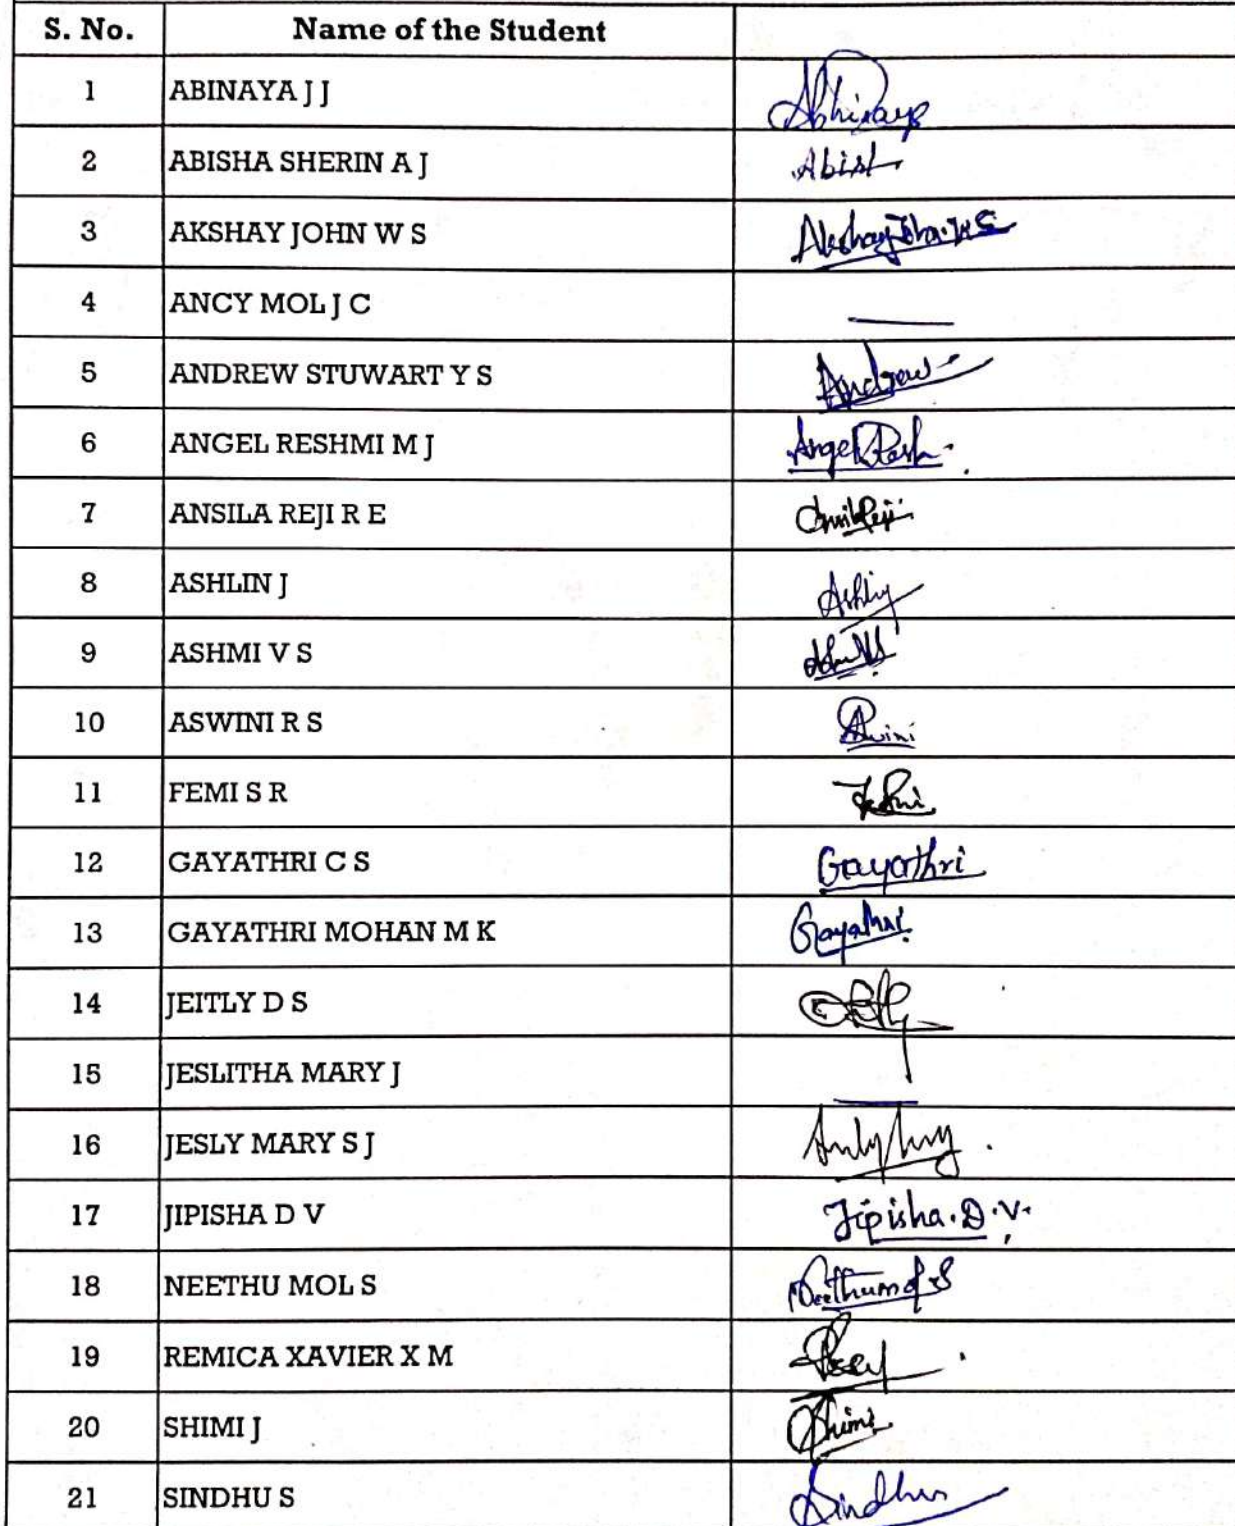 S. No. Name of the Student
1 ABINAYA J J Abhinaya
2 ABISHA SHERIN A J Abish
3 AKSHAY JOHN W S Akshay John. W S
4 ANCY MOL J C
5 ANDREW STUWART Y S Andrew
6 ANGEL RESHMI M J Angel Resh
7 ANSILA REJI R E
8 ASHLIN J Ashlin
9 ASHMI V S
10 ASWINI R S
11 FEMI S R
12 GAYATHRI C S Gayathri
13 GAYATHRI MOHAN M K Gayathri
14 JEITLY D S
15 JESLITHA MARY J
16 JESLY MARY S J
17 JIPISHA D V Jipisha. D. V.
18 NEETHU MOL S Neethumol S
19 REMICA XAVIER X M
20 SHIMI J Shimi
21 SINDHU S Sindhu